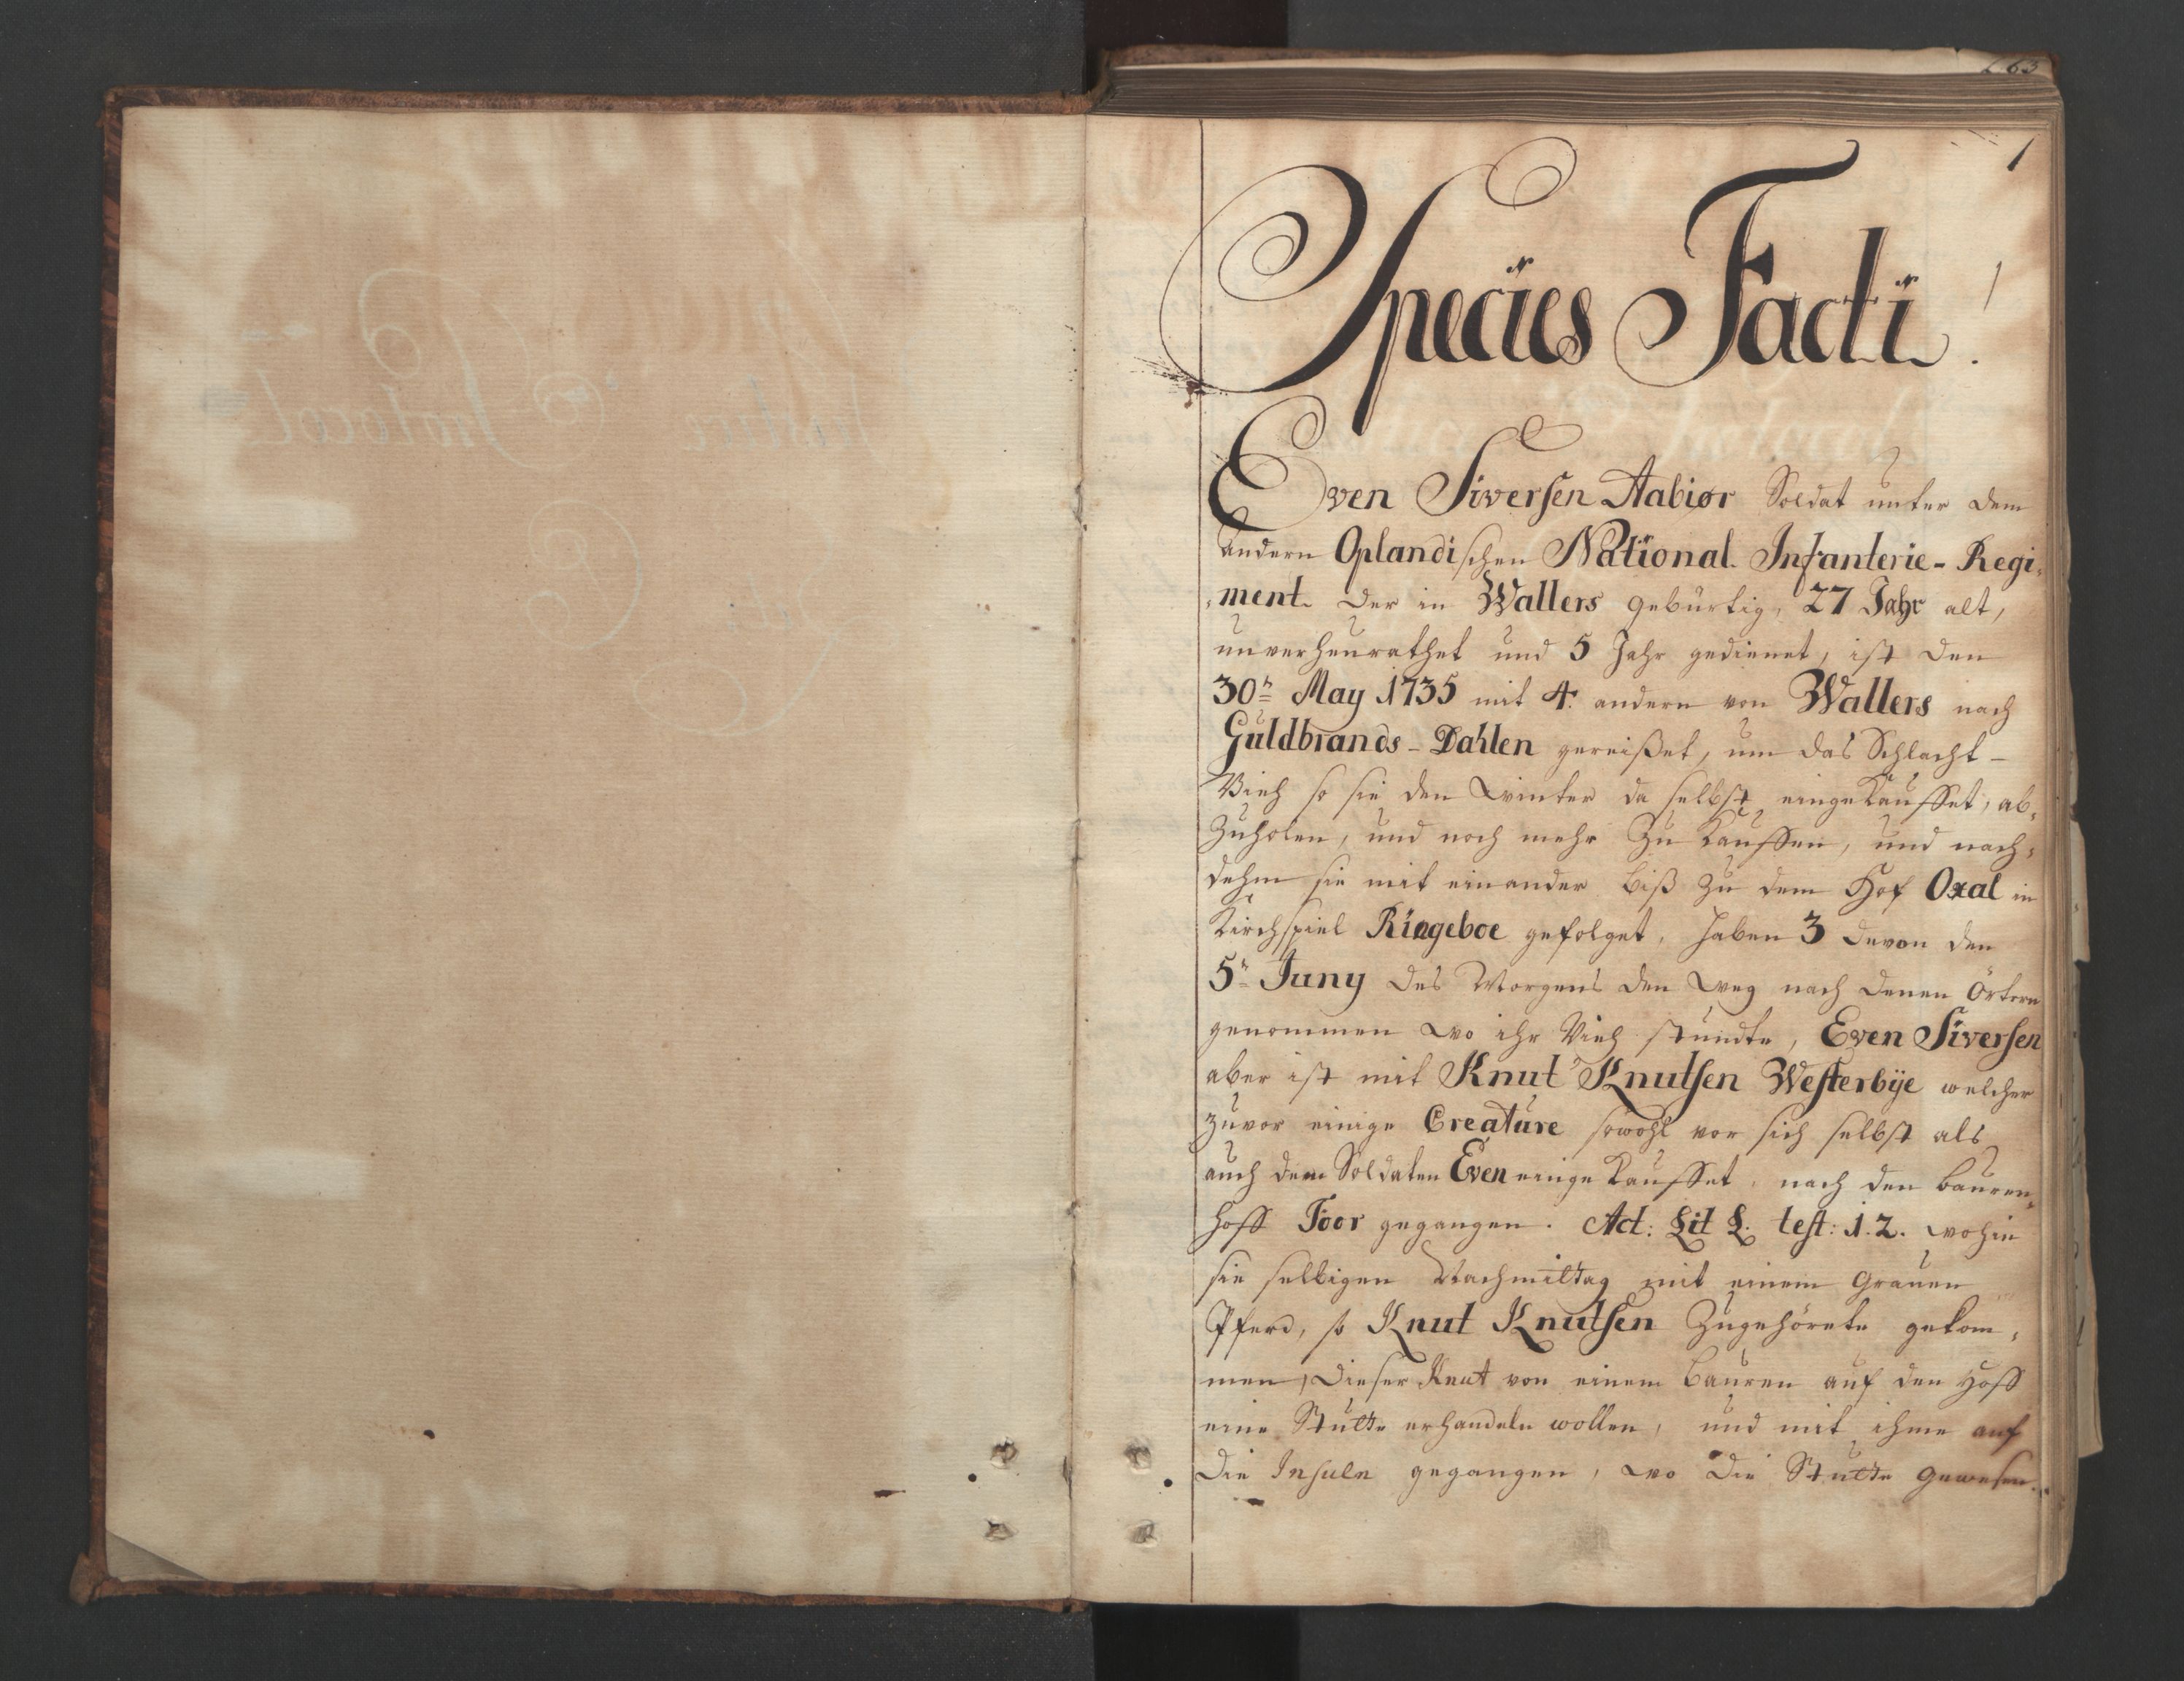 1
Species Facti.
Even Siversen Aabiør Soldat unter dem
andern Oplandischen National Infanterie-Regi-
ment. der in Wallers gebürtig, 27 Jahr alt,
unverheurathet und 5 Jahr gedienet, ist den
30n May 1735 mit 4. andern von Wallers nach
Guldbrands-Dahlen gereißet, um das Schlacht-
Vieh so sie den winter da selbst eingekauffet, ab-
zuholen, und noch mehr zu kauffen, und nach-
dehm sie mit einander biß zu dem Hof Oxal in
Kirchspiel Ringeboe gefolget, haben 3 davon den
5n Juny des Morgens den weg nach denen Örtern
genommen wo ihr Vieh stundte, Even Siversen
aber ist mit Knut Knutsen Westerbÿe welcher
zuvor einige Creature sowohl vor sich selbst als
auch dem Soldaten Even einge kauffet, nach den bauren-
hoff Toor gegangen. Act: Lit L. test: 1.2. wohin
sie selbigen Nachmittag mit einem Grauen
Pferd, so Knut Knutsen Zugehörete gekom-
men, dieser Knut von einem bauren auf den Hoff
eine Stutte erhandeln wollen, und mit ihme auf
die Insuln gegangen, wo die Stutte gewesen.